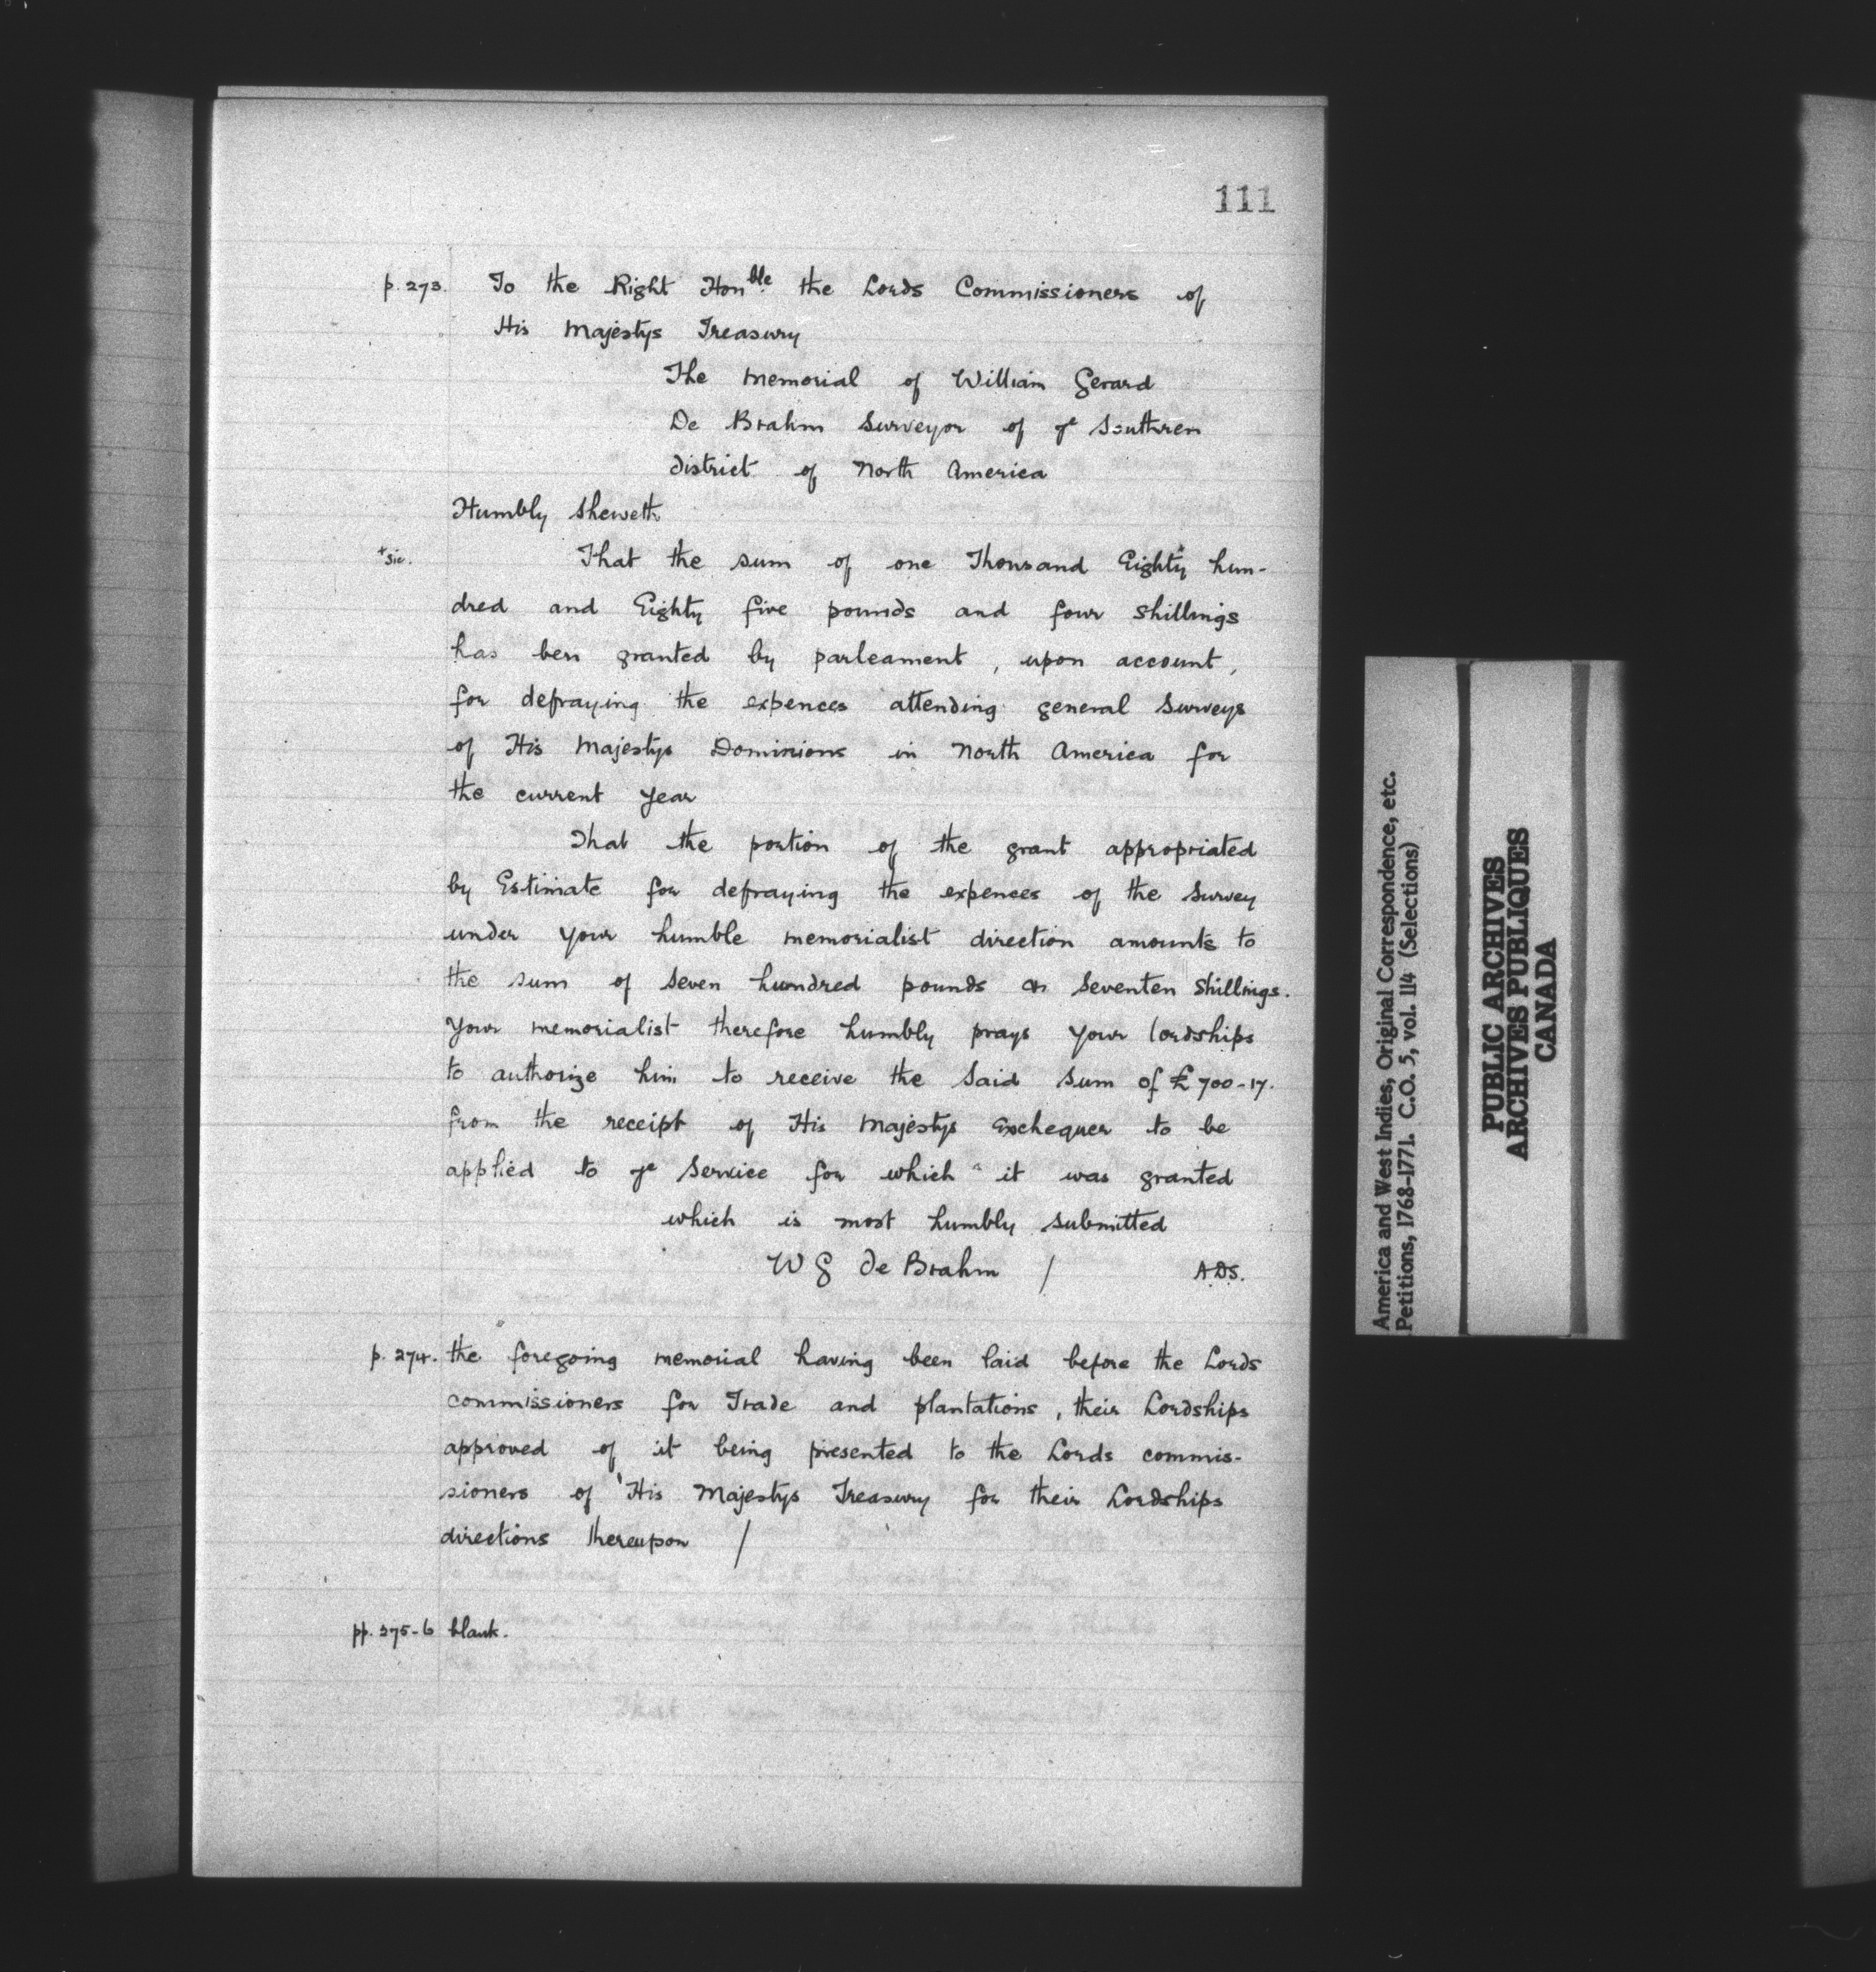 111
p. 273. To the Right Honble the Lords Commissioners of
His Majestys Treasury
The memorial of William Gerard
De Brahm Surveyor of ye Southren
district of North America
Humbly Sheweth
+sic. That the sum of one Thousand Eighty+ hun-
dred and Eighty five pounds and four shillings
has ben granted by parleament, upon account,
for defraying the expences attending general Surveys
of His Majestys Dominions in North America for
the current year
That the portion of the grant appropriated
by Estimate for defraying the expences of the Survey
under your humble memorialist direction amounts to
the sum of Seven hundred pounds & Seventen Shillings.
Your memorialist therefore humbly prays your lordships
to authorize him to receive the said sum of £700-17.
from the receipt of His Majestys Exchequer to be
applied to ye Service for which it was granted
which is most humbly submitted
W G de Brahm / A.D.S.
p. 274. the foregoing memorial having been laid before the Lords
commissioners for Trade and plantations, their Lordships
approved of it being presented to the Lords commis-
sioners of His Majestys Treasury for their Lordships
directions thereupon /
pp. 275-6 blank.
America and West Indies, Original Correspondence, etc.
Petitions, 1768-1771. C.O. 5, vol. 114 (Selections)
PUBLIC ARCHIVES
ARCHIVES PUBLIQUES
CANADA